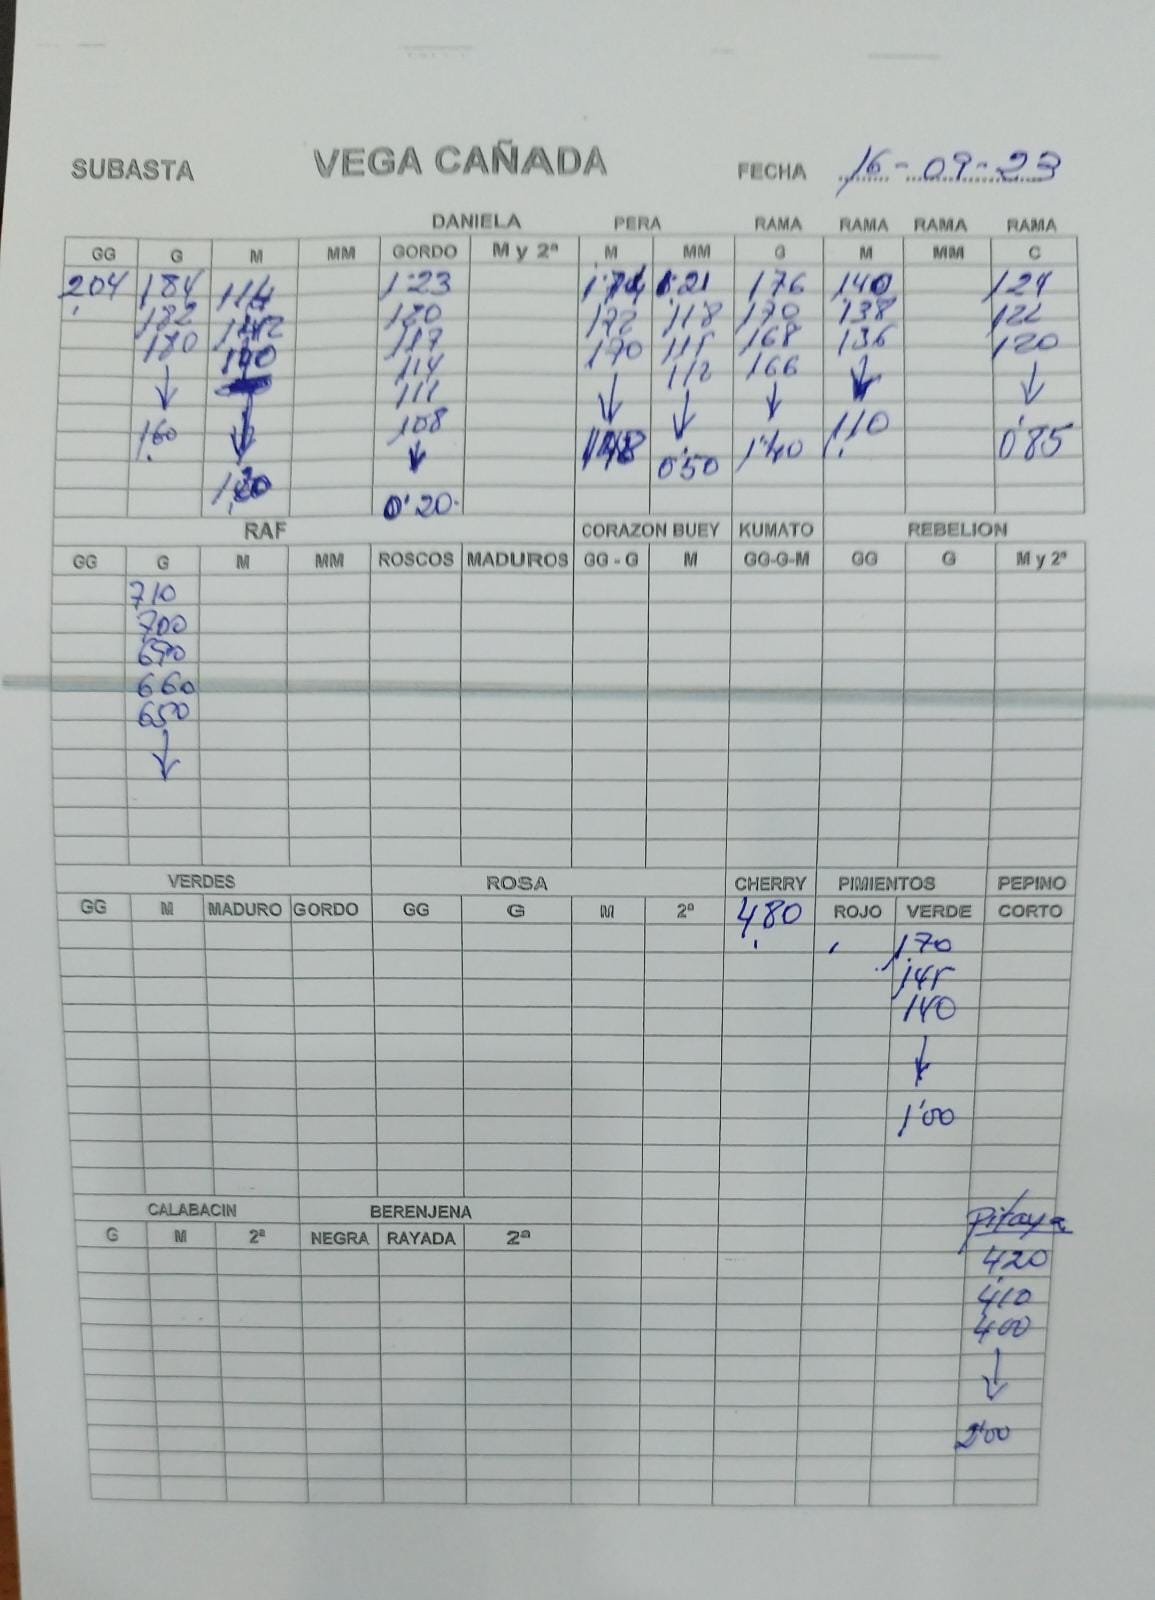 SUBASTA VEGA CAÑADA FECHA 16-09-23
DANIELA PERA RAMA RAMA RAMA RAMA
GG G M MM GORDO M y 2ª M MM G M MM C
204 184 114 1'23 1'21 176 140 124
182 120 172 118 170 138 122
180 117 170 115 168 136 120
114 112 166
111
160 108 1'40 110 0'85
0'50
0'20
RAF CORAZON BUEY KUMATO REBELION
GG G M MM ROSCOS MADUROS GG - G M GG-G-M GG G M y 2ª
710
700
670
660
650
VERDES ROSA CHERRY PIMIENTOS PEPINO
GG M MADURO GORDO GG G M 2ª 480 ROJO VERDE CORTO
170
145
140
1'00
CALABACIN BERENJENA Pitaya
G M 2ª NEGRA RAYADA 2ª
420
410
400
2'00